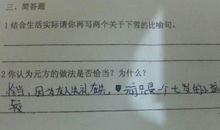 三、简答题
1结合生活实际请你再写两个关于下雪的比喻句。
2你认为元方的做法是否恰当？为什么？
恰当，因为友人失礼在先，元方只是个七岁的小
孩